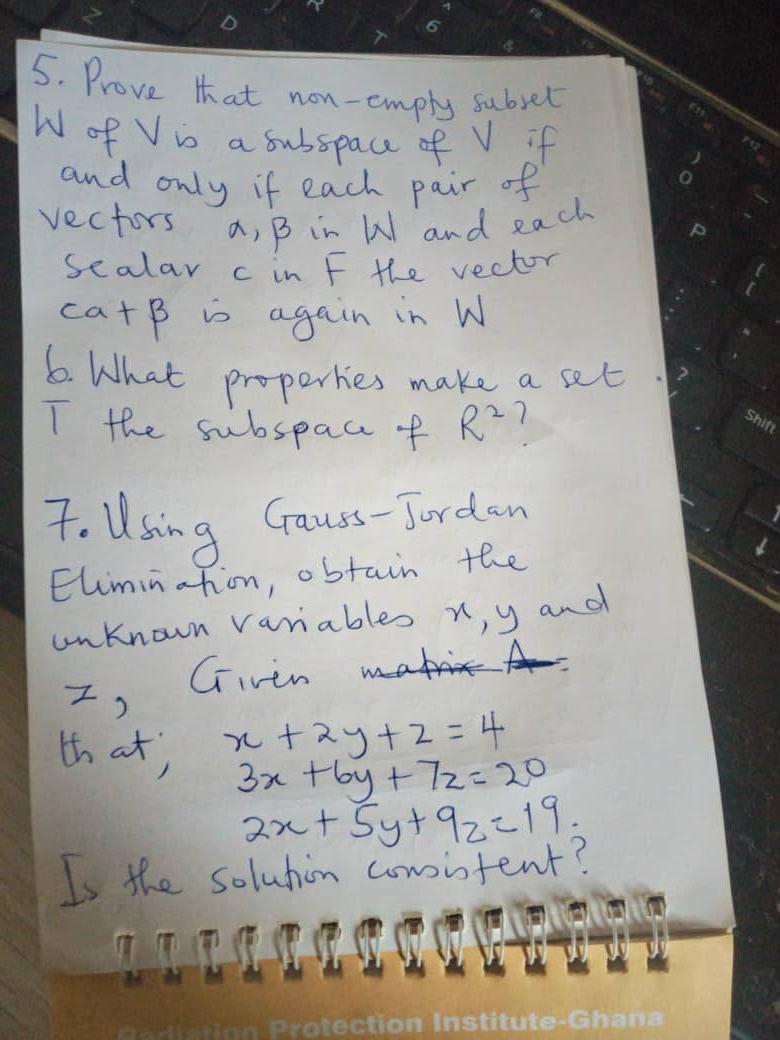 5. Prove that non-empty subset
W of V is a subspace of V if
and only if each pair of
vectors α, β in W and each
scalar c in F the vector
cα+β is again in W
6. What properties make a set
T the subspace of R²?
7. Using Gauss-Jordan
Elimination, obtain the
unknown variables x, y and
z, Given matrix A =
that; x + 2y + z = 4
3x + 6y + 7z = 20
2x + 5y + 9z = 19.
Is the solution consistent?
Radiation Protection Institute-Ghana
Z D R T 6 &
F8 F10 F11 F12
) O P { [ : ; " ' ? /
Shift